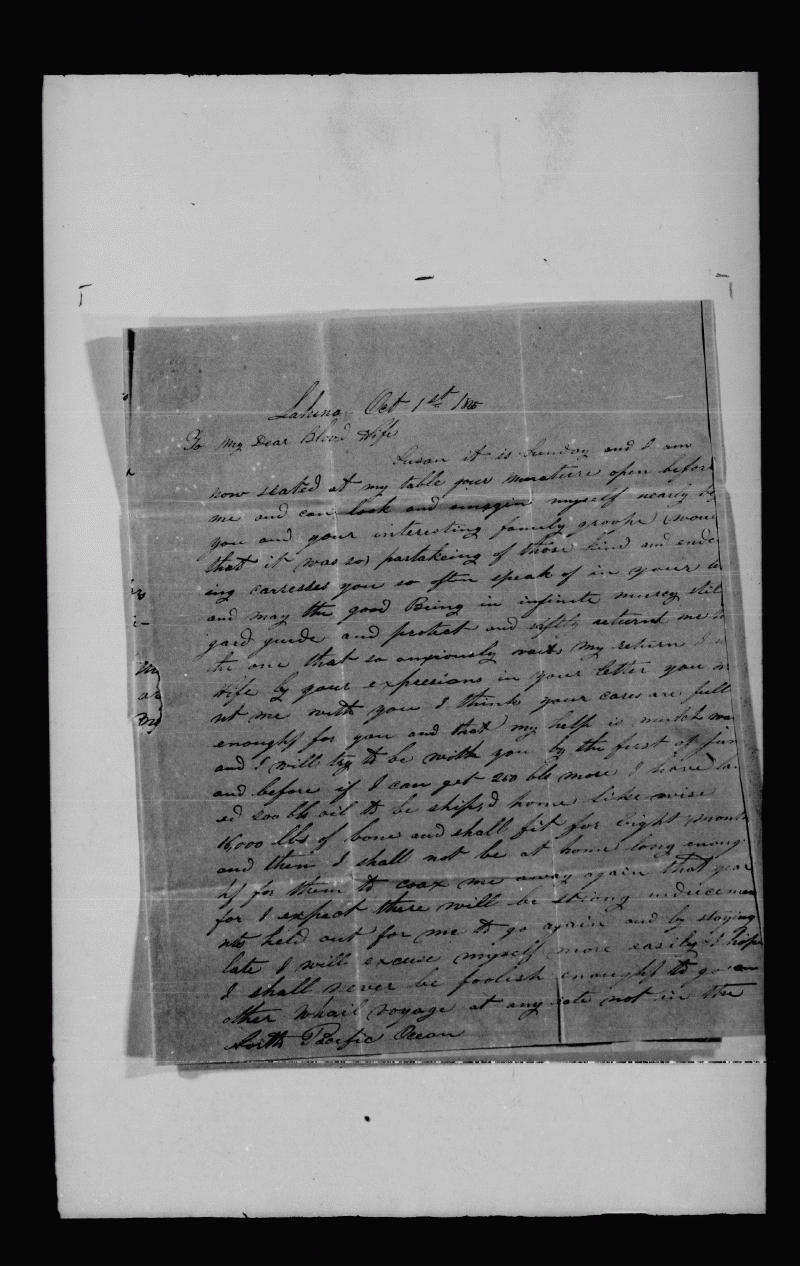 Lahina Oct 1st 185
To My Dear Blood Wife
Susan it is Sunday and I am
now seated at my table your minature open before
me and can look and imagin myself nearly by
you and your interesting family groope (wou
that it was so) partakeing of those kind and ende
ing carresses you so often speak of in your le
and may the good Being in infinite mercy still
gard guide and protect and safely returnd me to
the one that so anxiously waits my return
Wife by your expresions in your letter you
nt me with you I think your cares are full
enoughf for you and that my help is mutch
and I will try to be with you by the first of Jun
and before if I can get 200 bls more I have
ed 200 bls oil to be shipsd home like wise
16,000 lbs of bone and shall fit for eight month
and then I shall not be at home long enoug
hf for them to coax me away again that year
for I expect there will be strong indiceme
nts held out for me to go again and by staying
late I will excuse myself more easily I hope
I shall never be foolish enoughf to go an
other whail voyage at any rate not in the
North Pacific Ocean